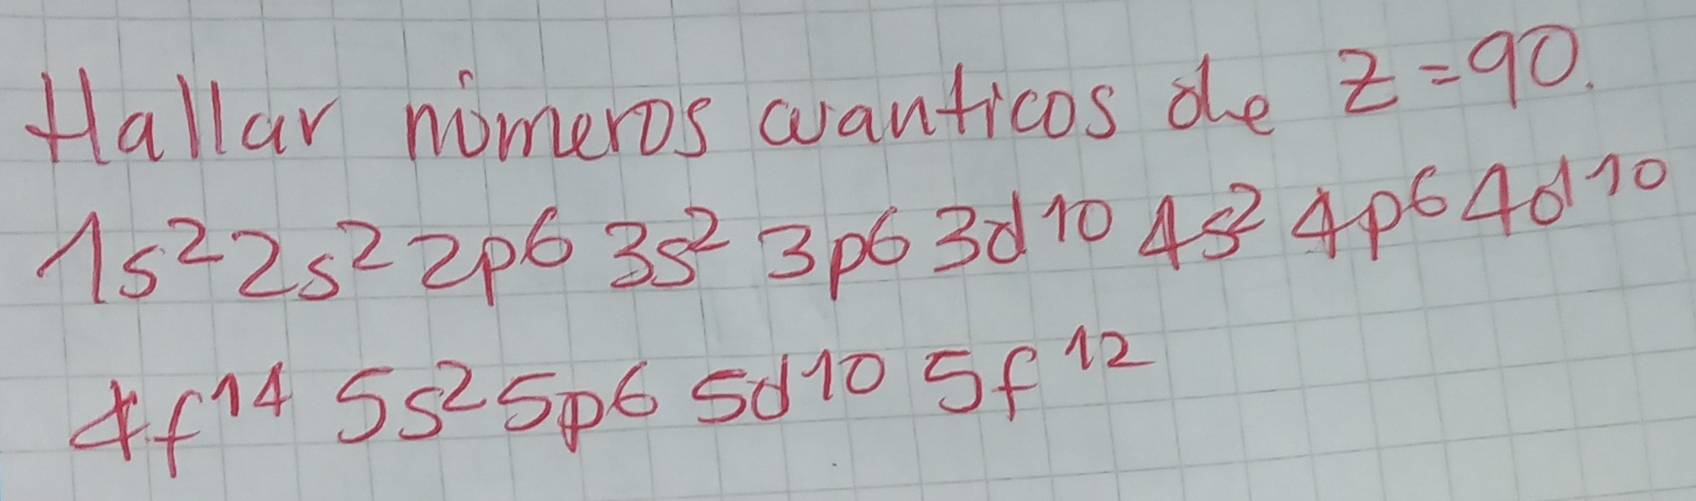 Hallar números cuanticos de z=90.
1s² 2s² 2p⁶ 3s² 3p⁶ 3d¹⁰ 4s² 4p⁶ 4d¹⁰
4f¹⁴ 5s² 5p⁶ 5d¹⁰ 5f¹²